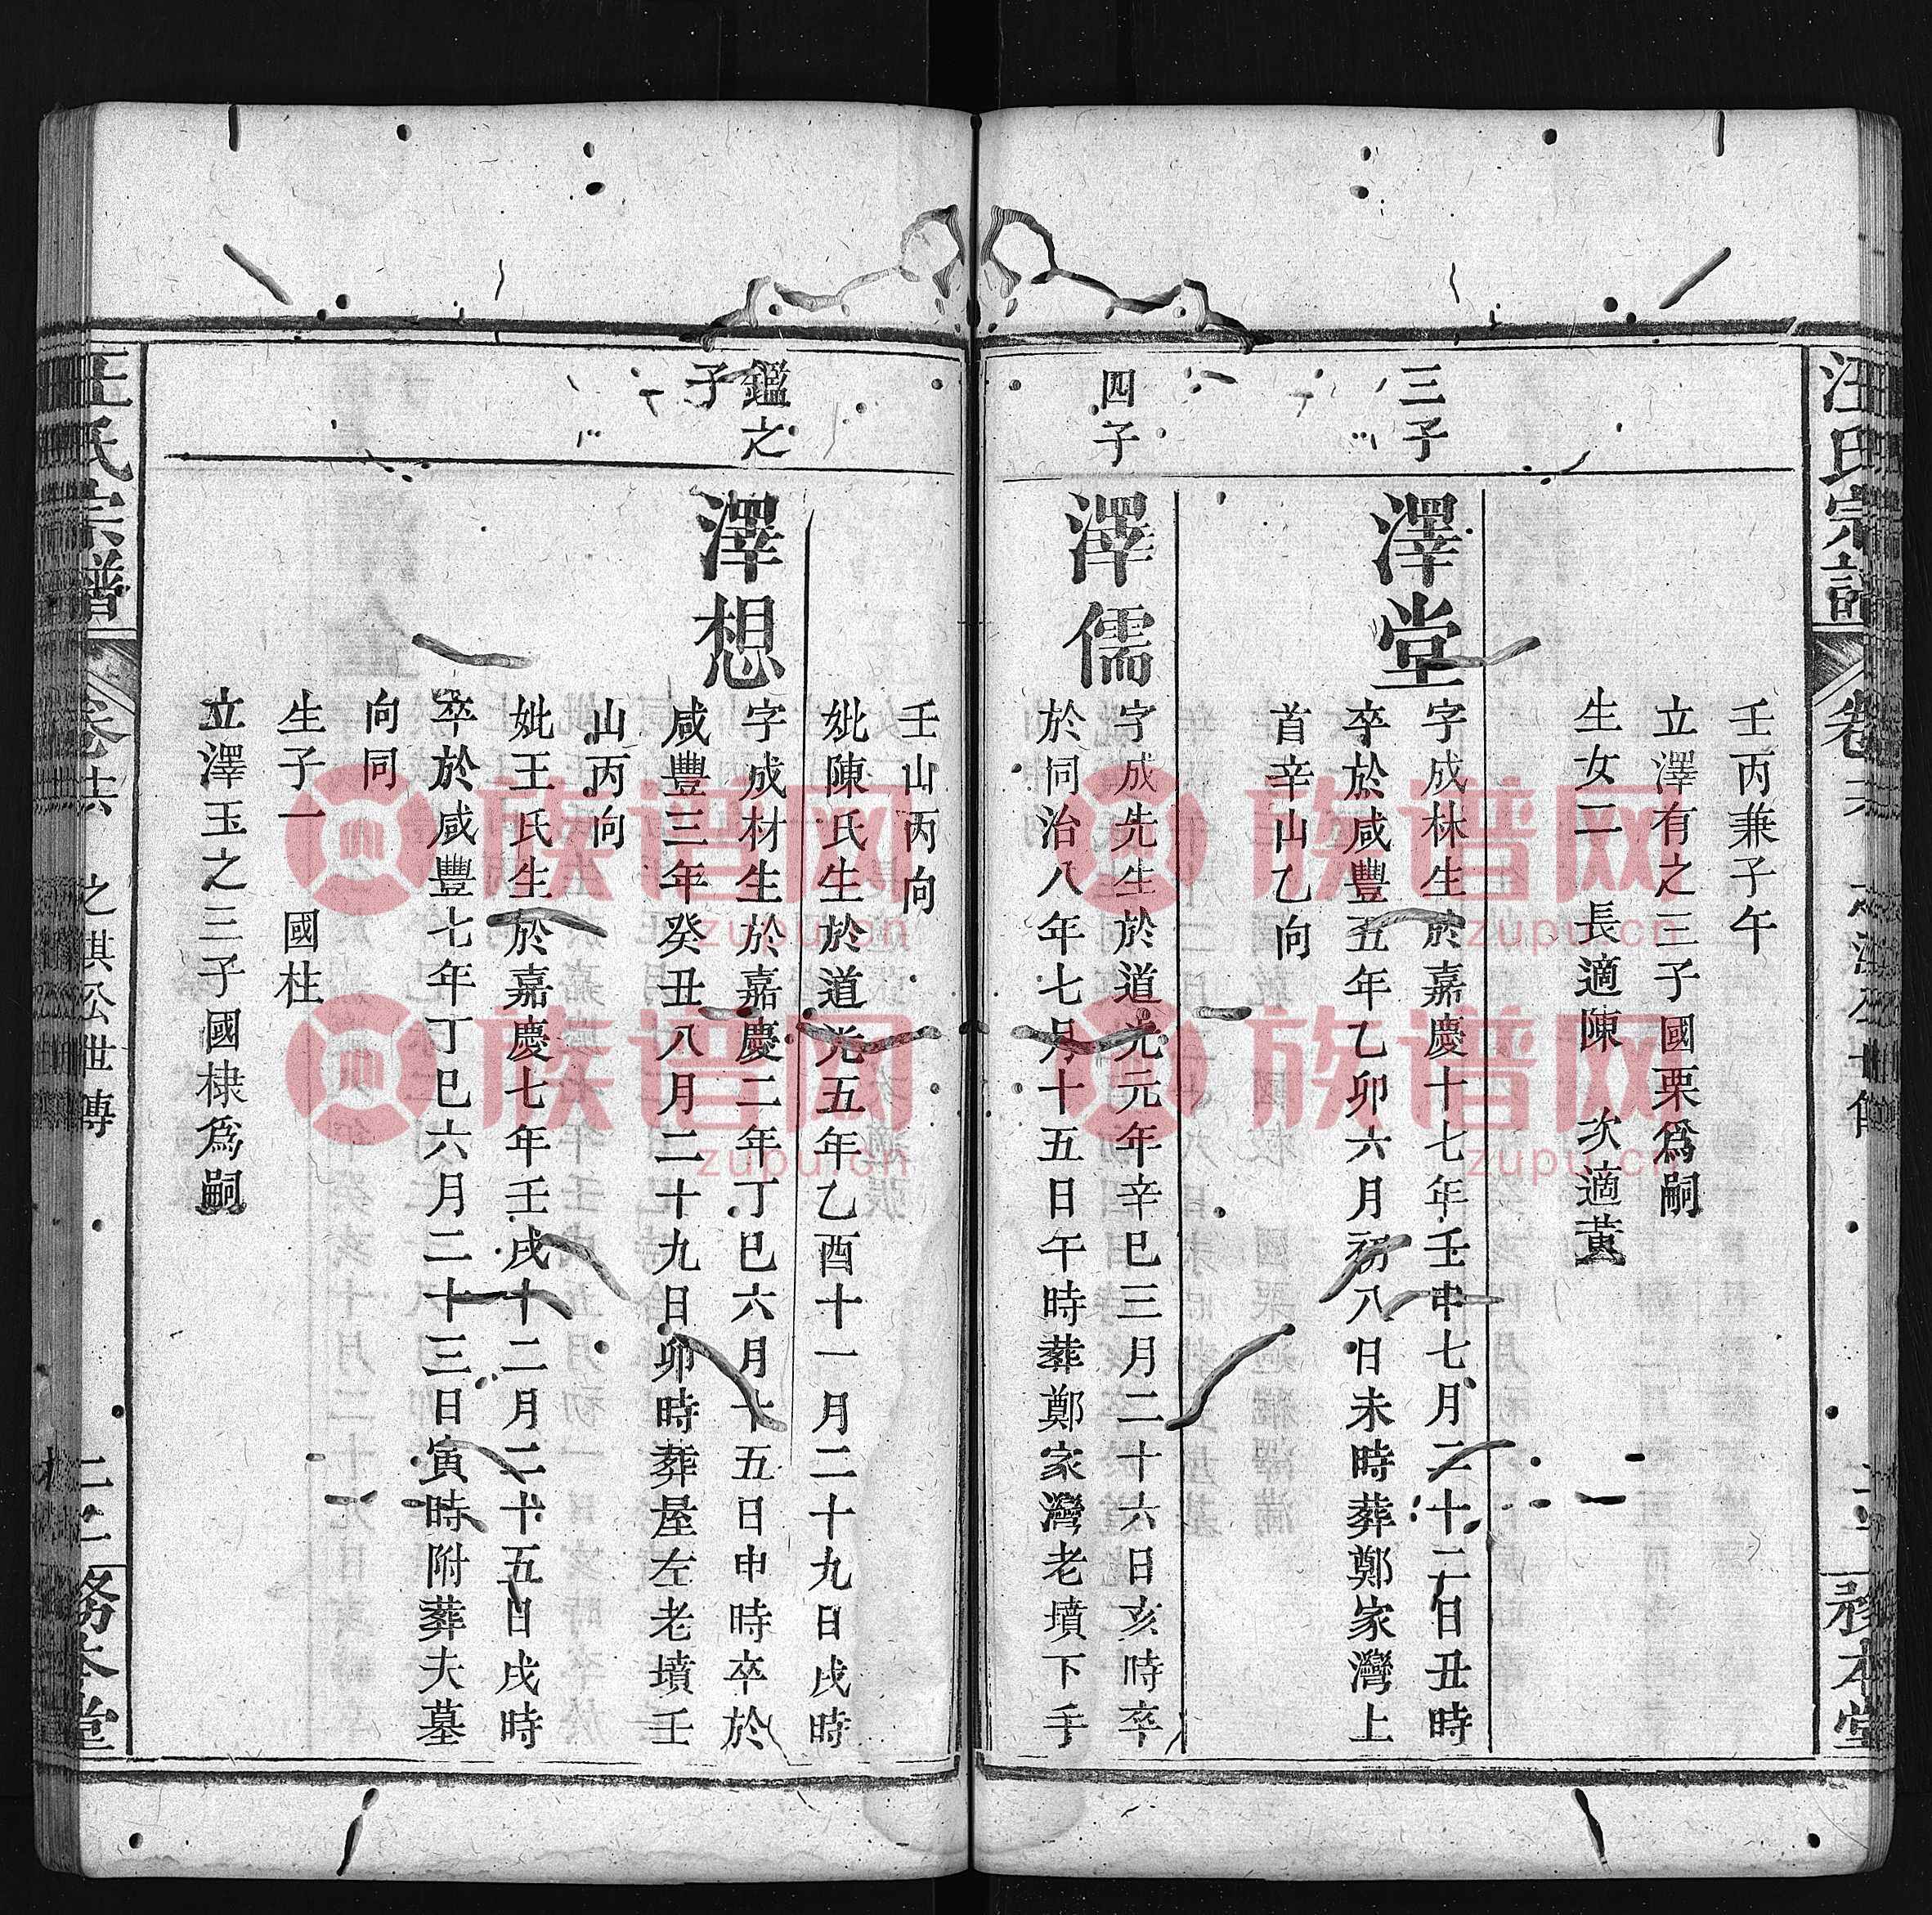 汪氏宗譜
壬丙兼子午
立澤有之三子國栗為嗣
生女二 長適陳 次適黃
三子
澤堂
字成林生於嘉慶十七年壬申七月二十二日丑時
卒於咸豐五年乙卯六月初八日未時葬鄭家灣上
首辛山乙向
四子
澤儒
字成先生於道光元年辛巳三月二十六日亥時卒
於同治八年七月十五日午時葬鄭家灣老墳下手
壬山丙向
妣陳氏生於道光五年乙酉十一月二十九日戌時
鑑之
子
澤想
字成材生於嘉慶二年丁巳六月十五日申時卒於
咸豐三年癸丑八月二十九日卯時葬屋左老墳壬
山丙向
妣王氏生於嘉慶七年壬戌十二月二十五日戌時
卒於咸豐七年丁巳六月二十三日寅時附葬夫墓
向同
生子一 國柱
立澤玉之三子國棣為嗣
汪氏宗譜
之淇公世傳
務本堂
族谱网
zupu.cn
族谱网
zupu.cn
族谱网
zupu.cn
族谱网
zupu.cn